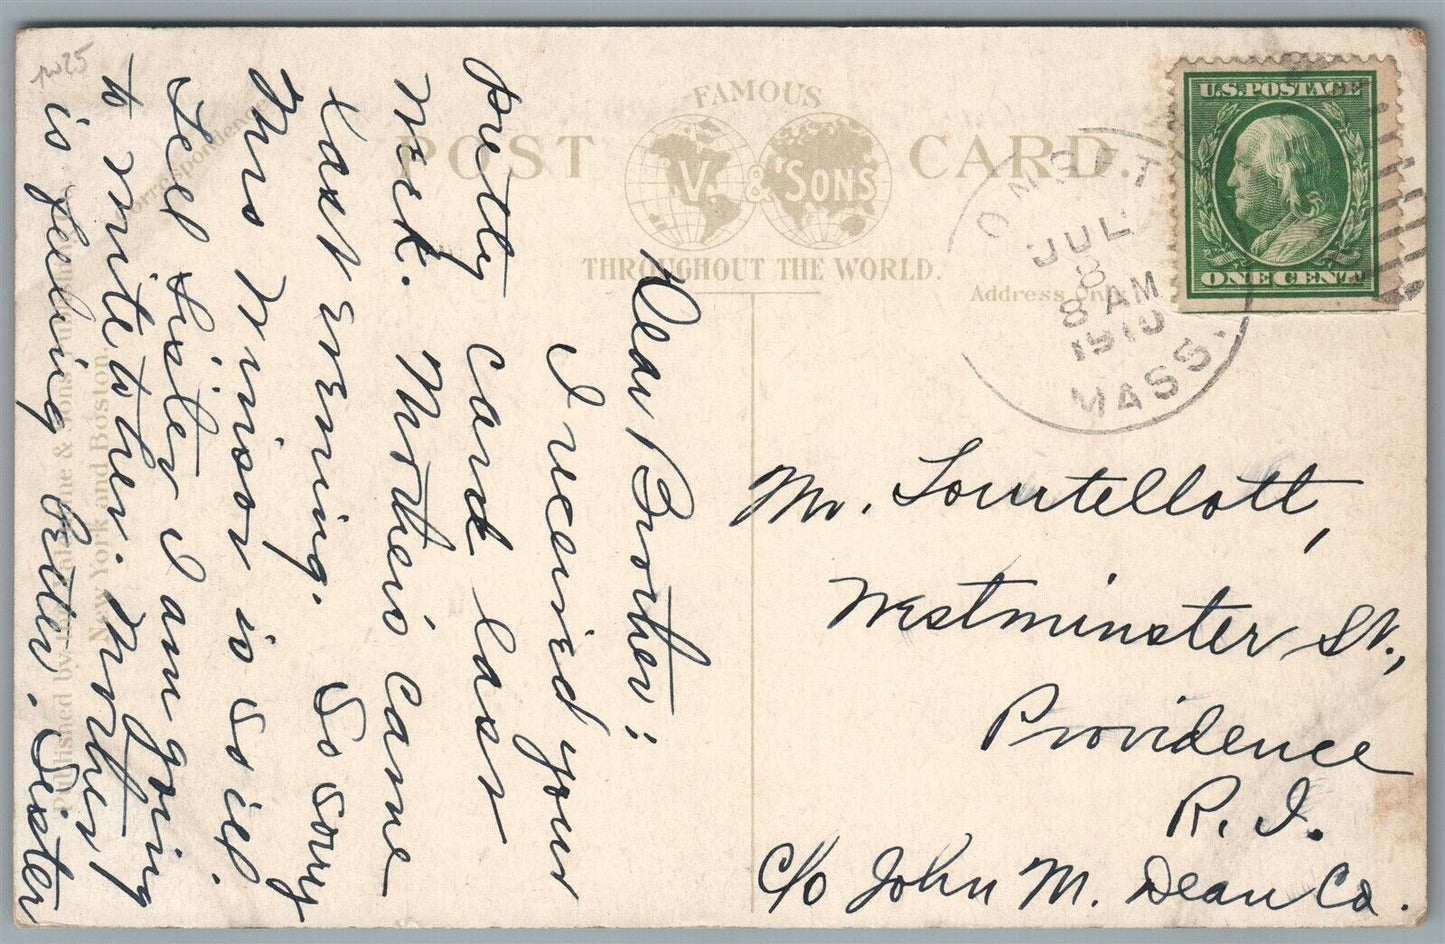 pw25
FAMOUS
POST CARD.
V. & SONS
THROUGHOUT THE WORLD.
Correspondence
Address Only
U.S. POSTAGE
ONE CENT
ONSET
JUL
8
8 AM
1910
MASS.
Dear Brother:
I received your
pretty card last
week. Mother's came
last evening. So sorry
Mrs Winsor is so ill.
Tell Sister I am going
to write to her. Mother
is feeling better. Sister
Mr. Tourtellott,
Westminster St.,
Providence
R. I.
c/o John M. Dean Co.
Published by the Valentine & Sons Publishing
New York and Boston.